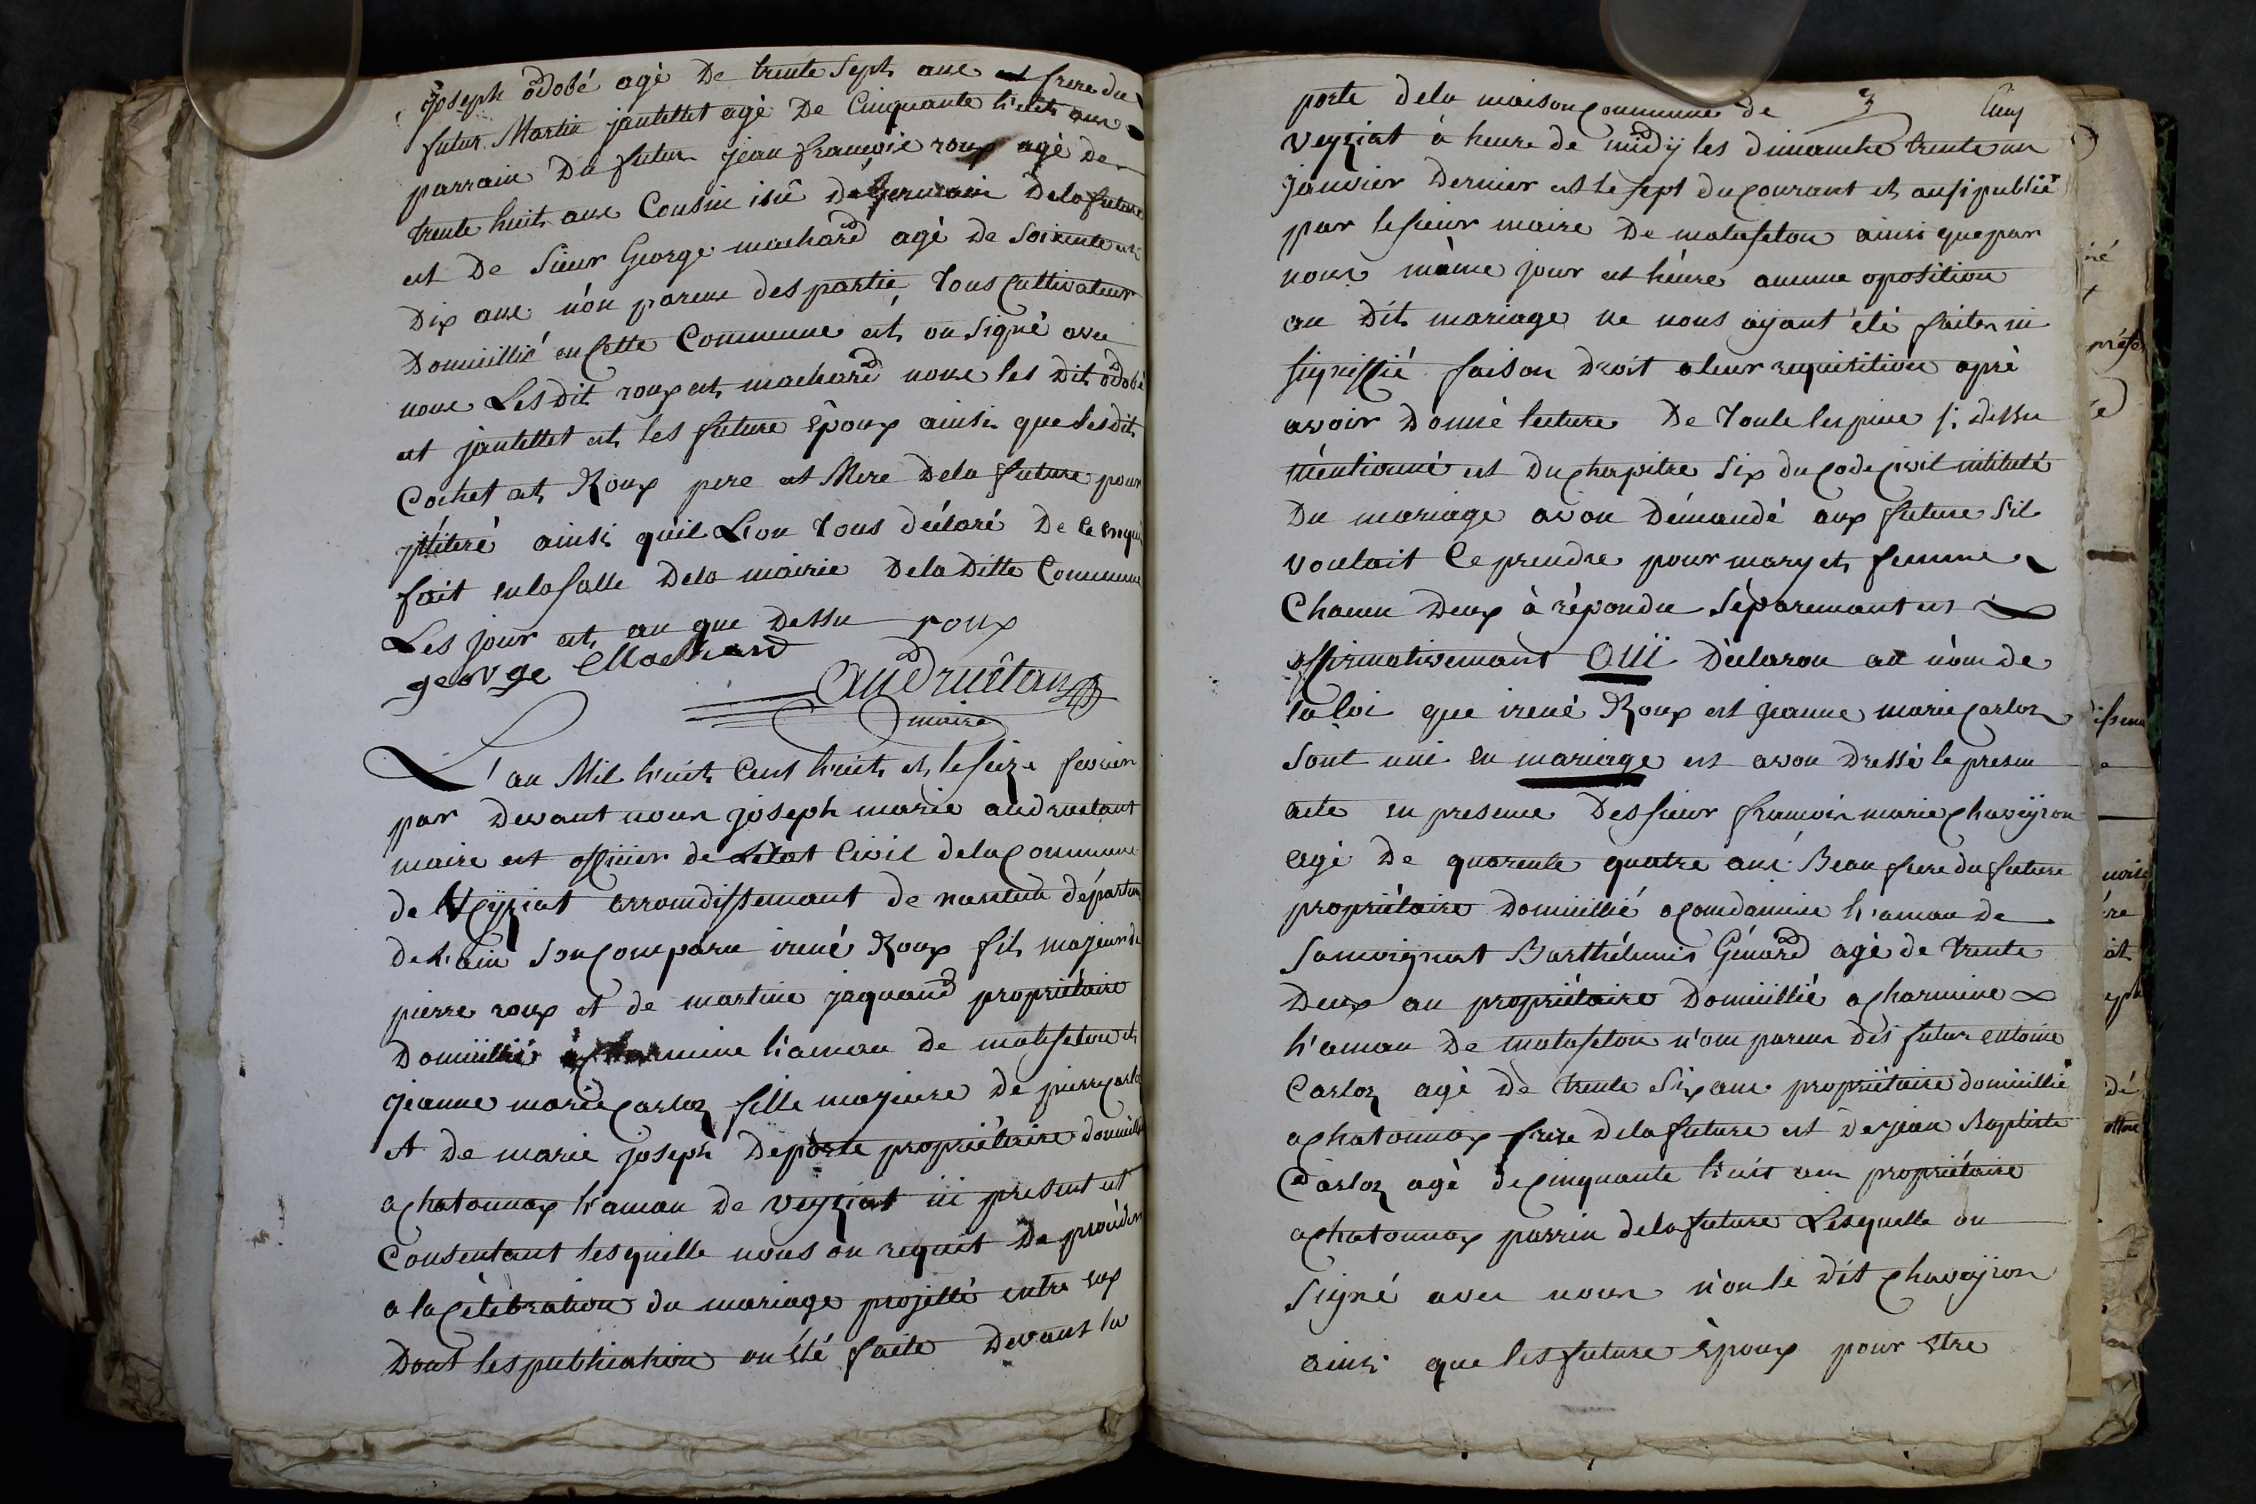 joseph odobé agé De trente Sept ans et frere du
futur Martin jantettet agé De Cinquante h'uit ans
parrain Du futur jean francois roux agé de
trente huit ans Cousin isû De germain Dela future
est De Sieur George machard agé De Soixente et
Dix ans n'on parens des partie, Tous Cultivateur
Domicillié en Cette Commune et on Signé avec
nous Les dit roux et machard nous les Dit odobé
et jantettet et les future Époux ainsi que lesdit
Cochet et Roux pere et Mere Dela future pour
ainsi qu'il L'on Tous déclaré De ce
fait en la salle Dela mairie Dela Ditte Commune
Les jour et an que Dessu roux
george Machard
audruetan
maire
L'an Mil huit Cent huit et le seize fevrier
par Devant nous joseph marie audruetant
maire est officier de Letat Civil dela Commune
de Veyziat arrondissemant de nantua départem
de L'ain Son Comparu irené Roux fils majeur de
pierre roux et de martine jaquand propriétaire
Domicillié a Charmine h'amau de matafelon et
jeanne marie Carloz fille majeure de pierre Carloz
et De marie joseph Deporte propriétaire domicillié
a Chatonnax h'amau de Veyziat ici present et
Consentant lesquille nous on requit De procéder
a la Célébration du mariage projetté entre eux
Dont les publication on été faite Devant la
porte dela maison Commune de 3 Cuny
Veyziat à heure de midÿ les dimanche trente un
janvier Dernier est le sept du Courant et ausi publié
par le sieur maire De matafelon ainsi que par
nous même jour est héure aucune oposition
au Dit mariage ne nous ayant été faiter ni
signiffié faison Droit a leur requisition aprè
avoir Donné lecture De Toute les piece si dessu
mentionné est Du Chapitre Six du Code Civil intitulé
Du mariage avon Démandé aux future Sil
voulait Ce prendre pour mary et femme
Chacun Deux à répondu Séparemant et
affirmativemant OUI Déclaron au nom de
la loi que irené Roux est jeanne marie Carloz
Sont uni en mariage est avon Dressé le presen
acte en presence Des sieur francois marie Chaveyron
agé De quarente quatre ans Beau frere du future
propriétaire Domicillié a Condamine h'amau de
Samoignat Barthélemis Génard agé de trente
Deux an propriétaire Domicillié a Charmine
h'amau De matafelon n'om paren dés futur antoine
Carloz agé De trente Six ans propriétaire domicillié
a Chatonnax frere Dela future est De jean Baptiste
Carloz agé de Cinquante h'uit ans propriétaire
a Chatonnax parrin dela future Lesquelle on
Signé avec nous n'on le Dit Chaveyron
ainsi que les future Époux pour etre